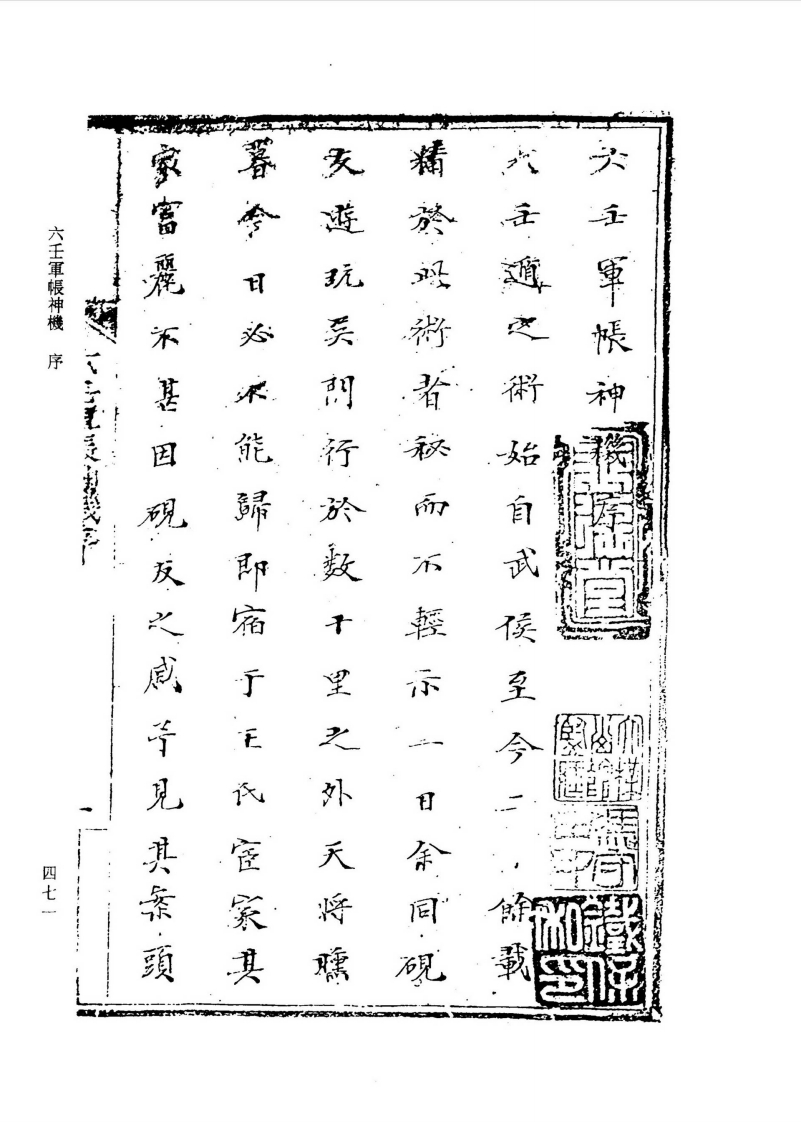 六壬軍帳神機序
六壬遁之術始自武侯至今二餘載
精於此術者秘而不輕示一日余同硯
友遊玩吳門行於数十里之外天將曛
暮今日必不能歸即宿于王氏宦家其
家富麗不甚因硯友之戚等見其案頭
六壬軍帳神機序
一
六壬軍帳神機 序
四七一